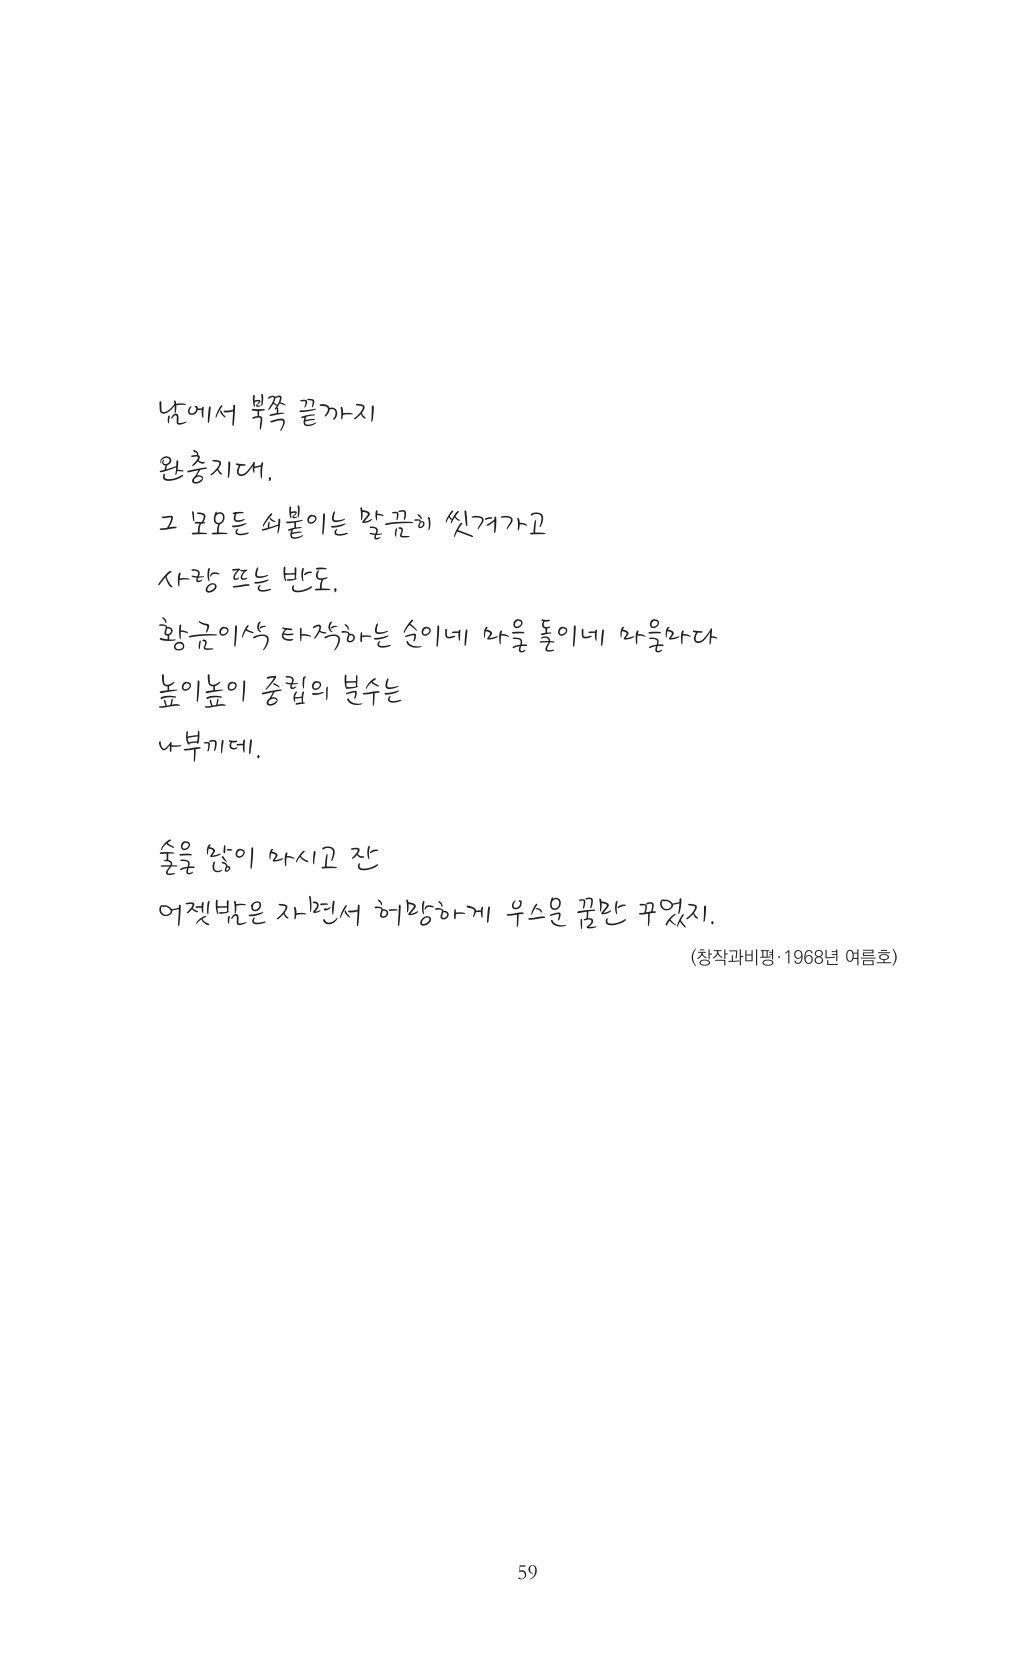 남에서 북쪽 끝까지
완충지대.
그 모오든 쇠붙이는 말끔히 씻겨가고
사랑 뜨는 반도.
황금이삭 타작하는 순이네 마을 돌이네 마을마다
높이높이 중립의 분수는
나부끼데.
술을 많이 마시고 잔
어젯밤은 자면서 허망하게 우스운 꿈만 꾸었지.
(창작과비평·1968년 여름호)
59